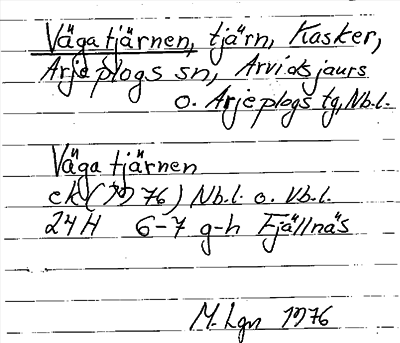 Vägatjärnen, tjärn, Kasker,
Arjeplogs sn, Arvidsjaurs
o. Arjeplogs tg, Nb.l.
Vägatjärnen
ek (1976) Nb.l. o. Vb.l.
24H 6-7 g-h Fjällnäs
M. Lgn 1976